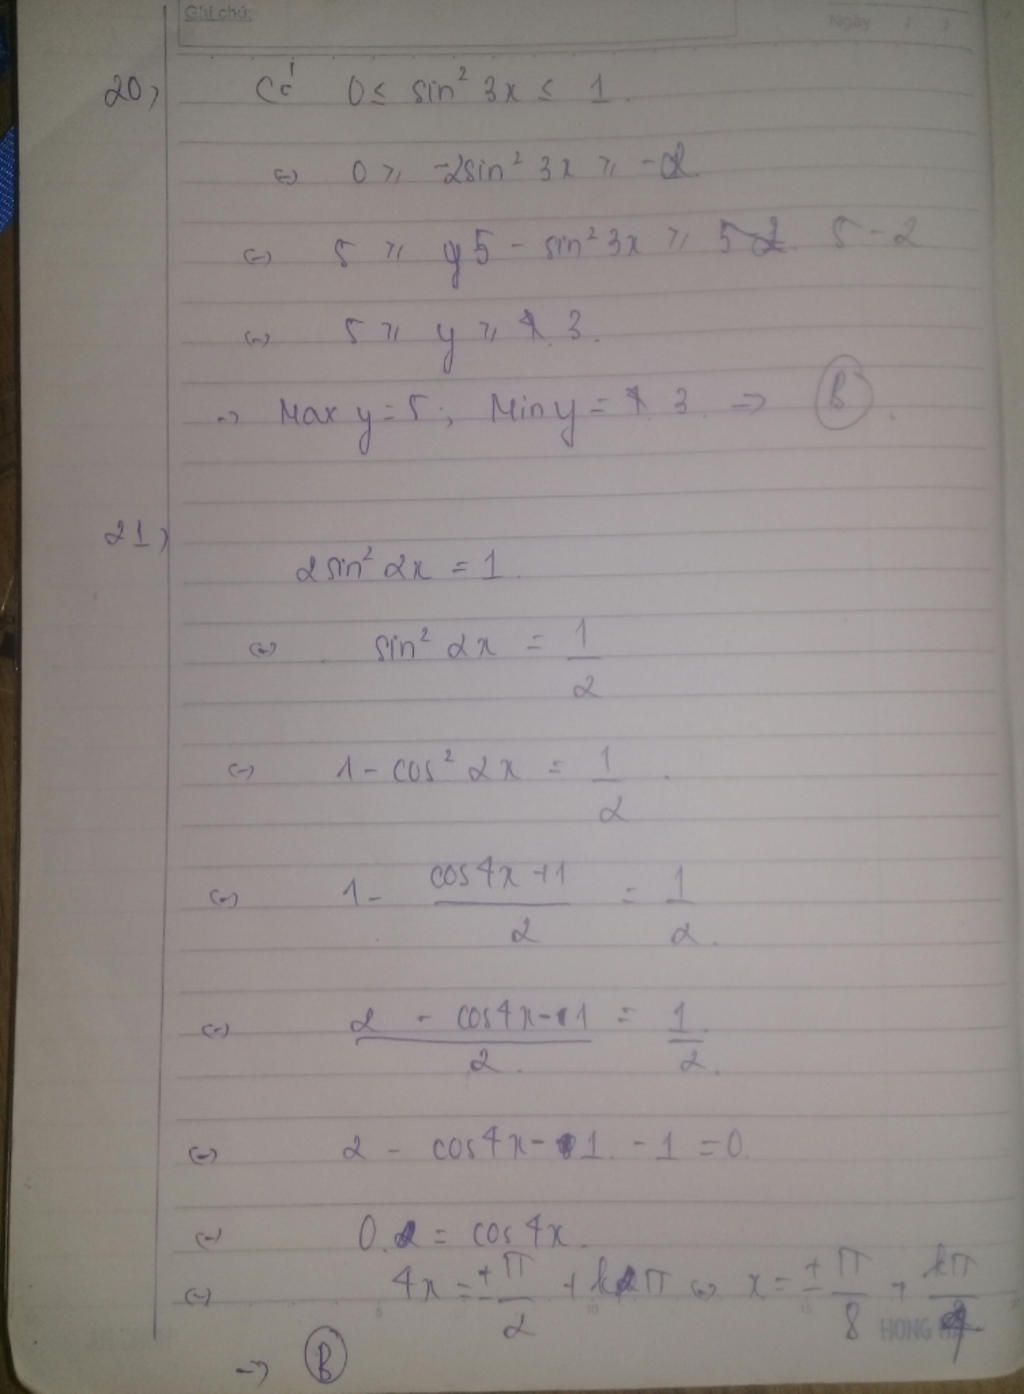 Ghi chú:
Ngày / /
20) Có 0 ≤ sin² 3x ≤ 1.
⇔ 0 ≥ -2sin² 3x ≥ -2.
⇔ 5 ≥ y5 - sin² 3x ≥ 5-2. 5-2
⇔ 5 ≥ y ≥ 3.
→ Max y = 5; Min y = 3. → B.
21)
2sin² 2x = 1.
⇔ sin² 2x = 1/2
⇔ 1 - cos² 2x = 1/2.
⇔ 1 - (cos4x+1)/2 = 1/2.
⇔ (2 - cos4x - 1)/2. = 1/2.
⇔ 2 - cos4x - 1. - 1 = 0.
⇔ 0. = cos4x.
⇔ 4x = ±π/2 + kπ ⇔ x = ±π/8 + kπ/4
→ B